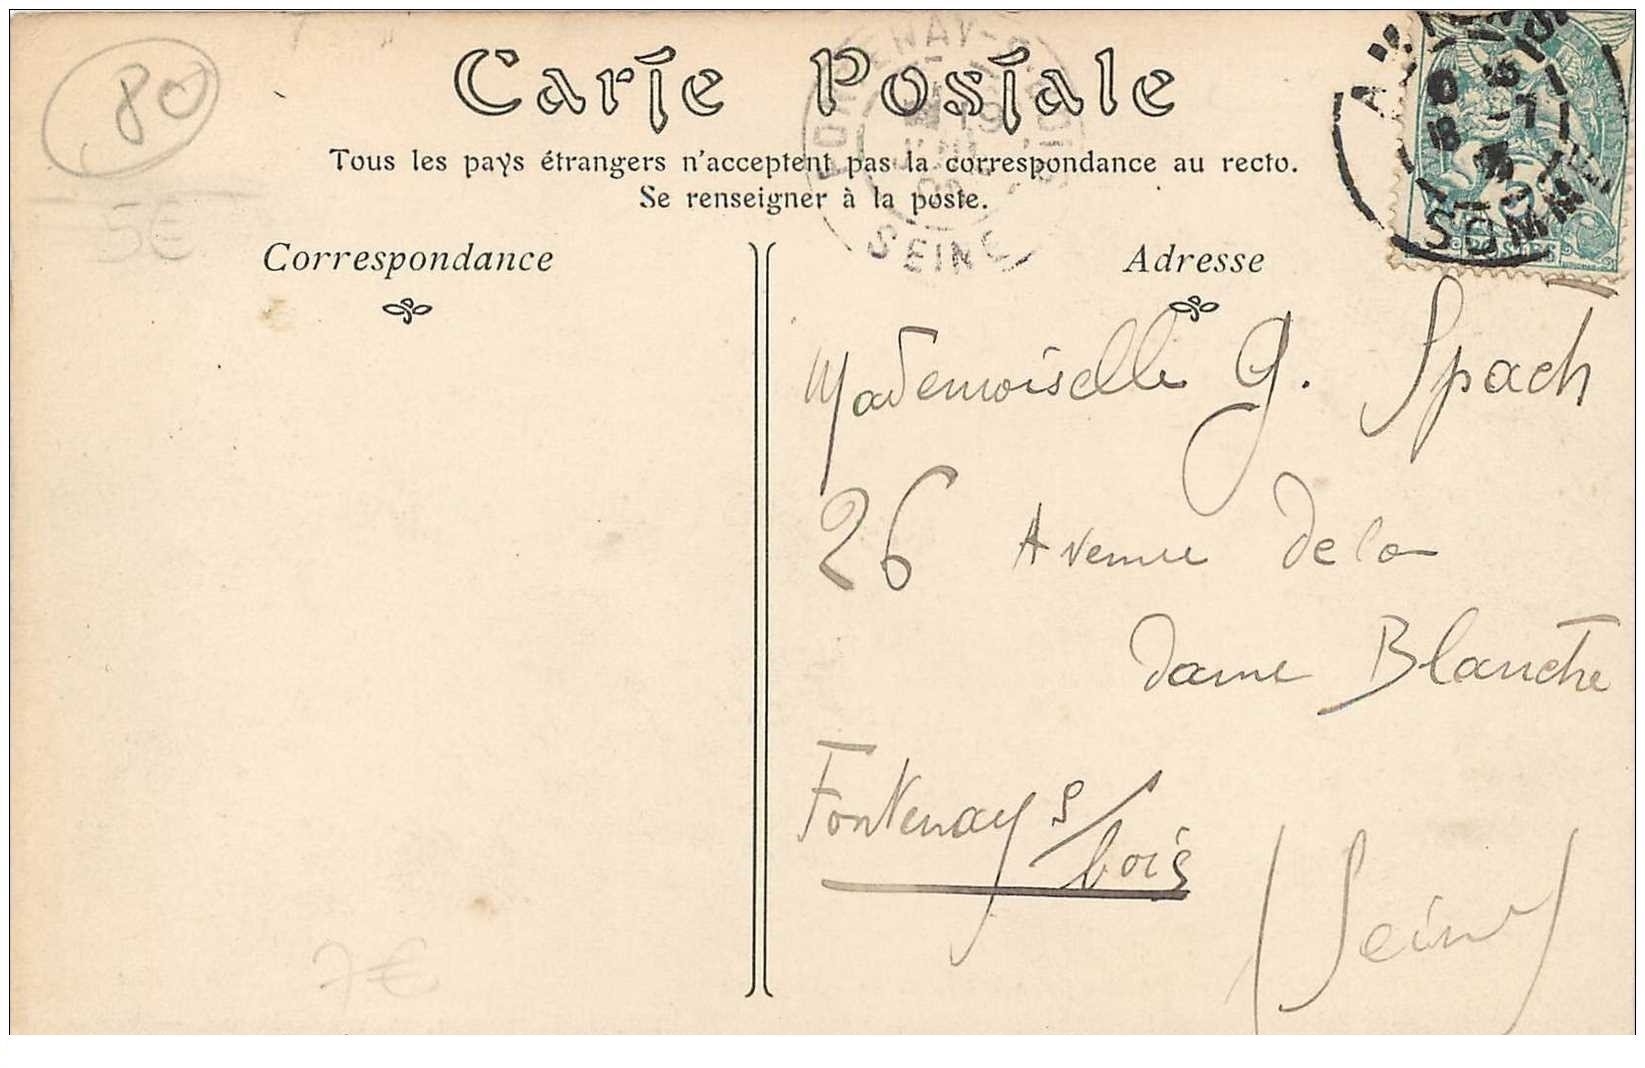 80
5€
Carte Postale
Tous les pays étrangers n'acceptent pas la correspondance au recto.
Se renseigner à la poste.
Correspondance
Adresse
AMIENS
SOMME
POSTES
SEINE
Mademoiselle G. Spach
26 Avenue de la
Dame Blanche
Fontenay s/ bois
(Seine)
7€